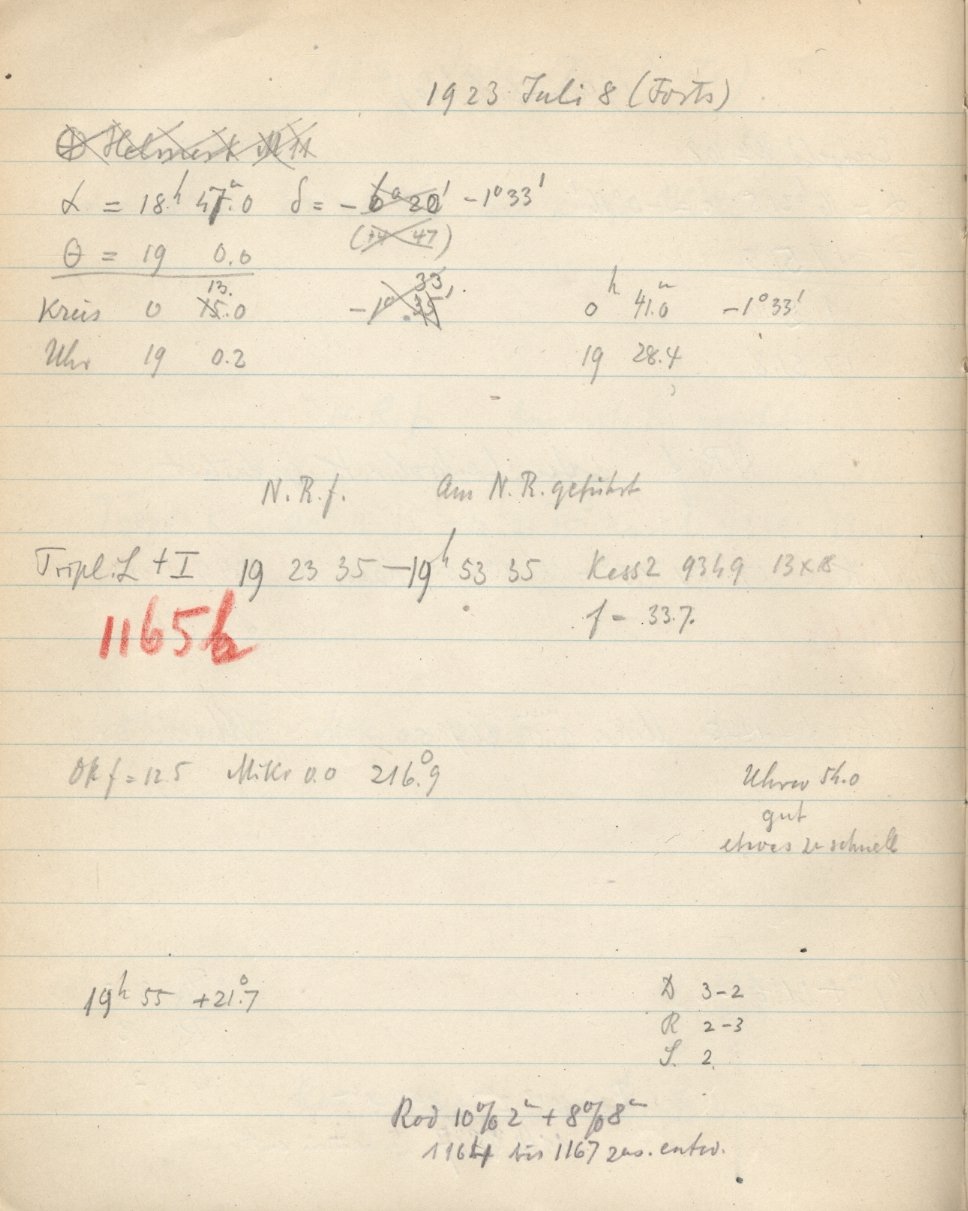 1923 Juli 8 (Forts)
α = 18h 47m.0 δ = -6° 20' -1°33'
(+4 47)
θ = 19 0.0
13. 33
Kreis 0 15.0 -1° 35' 0h 41.0m -1°33'
Uhr 19 0.2 19 28.4
N.R.f. Am N.R. geführt
Tripl. L + I 19 23 35 — 19h 53 35 9349 13x18
1165 f = 33.7.
Ok f = 12.5 Mikr 0.0 216°.9 54.0
gut
etwas zu schnell
19h 55 +21°.7 D 3-2
R 2-3
S. 2
Rod 10% 2m + 8% 8m
1164 bis 1167 zus. entw.